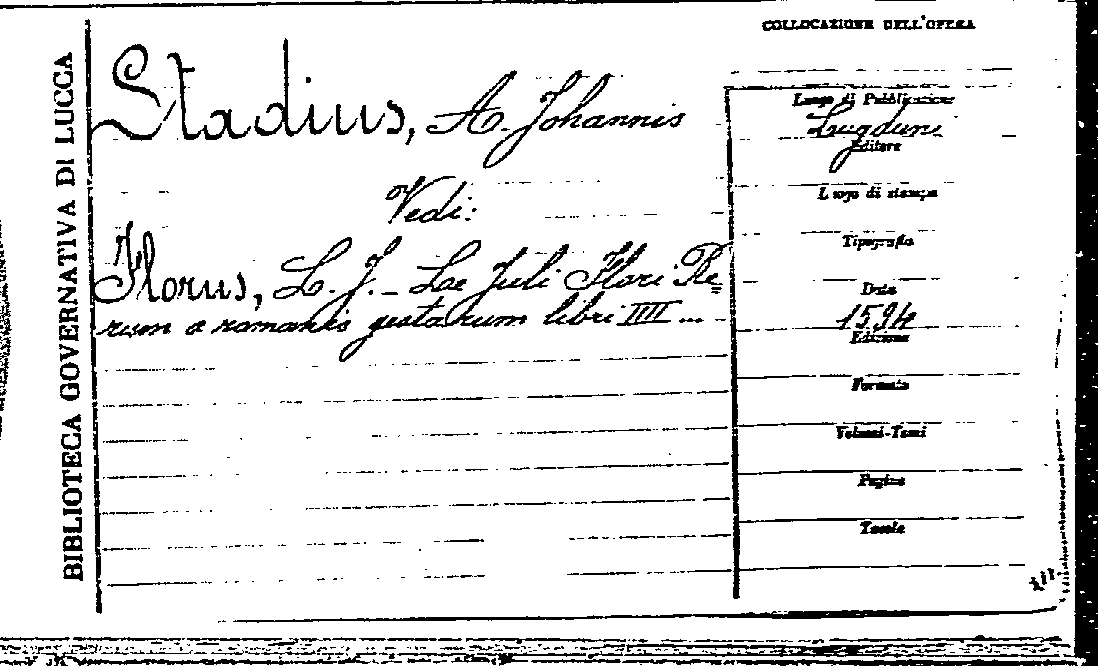 BIBLIOTECA GOVERNATIVA DI LUCCA
Stadius, A. Johannis
Vedi:
Florus, L. J. - Le Juli Flori Re=
rum a romanis gestarum libri IIII ...
COLLOCAZIONE DELL'OPERA
Luogo di Pubblicazione
Lugduni
Editore
Luogo di stampa
Tipografia
Data
1594
Edizione
Formato
Volumi-Tomi
Pagine
Tavole